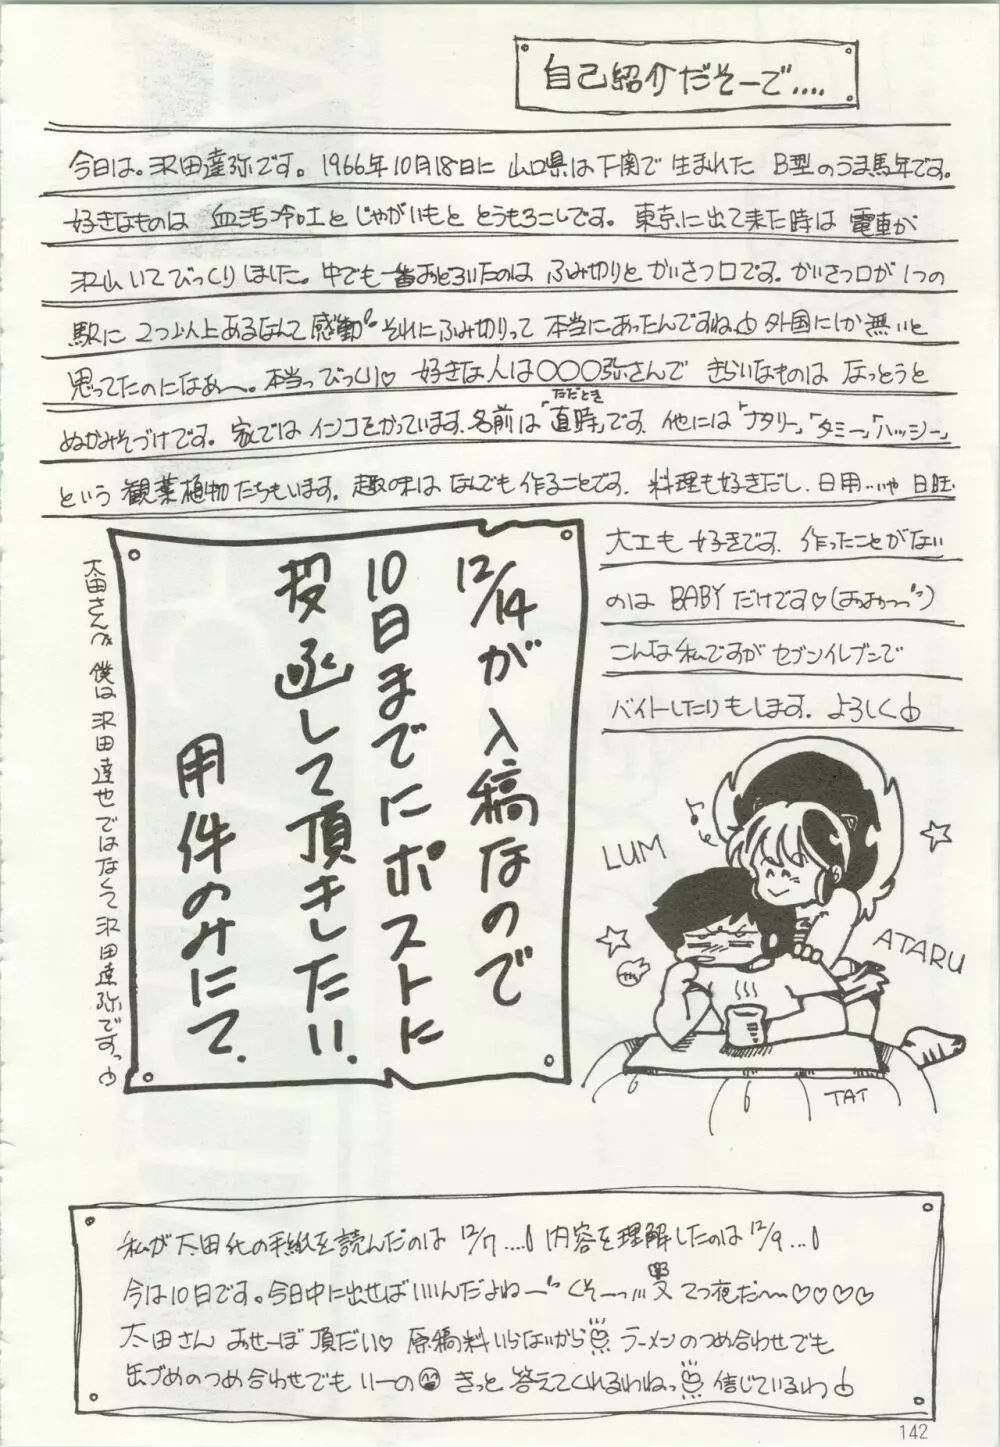 自己紹介だそーで....
今日は。沢田達弥です。1966年10月18日に 山口県は下関で 生まれた B型のうま馬年です。
好きなものは 血汚冷吐と じゃがいもと とうもろこしです。東京に出て来た時は 電車が
沢山いてびっくりしました。中でも一番おどろいたのは ふみ切りと かいさつ口です。かいさつ口が1つの
駅に 2つ以上あるなんて感動〃それにふみ切りって 本当にあったんですね 外国にしか無いと
思ってたのになぁ〜。本当っびっくり♡ 好きな人は〇〇〇弥さんで きらいなものは なっとうと
ぬかみそづけです。家では インコをかっています。名前は「直時」です。他には「ナタリー」「タミー」「ハッジー」
ただとき
という 観葉植物たちもいます。趣の味は なんでも 作ることです。料理も好きだし、日用…いや 日旺
大工も 好きです。作ったことがない
のは BABY だけです♡
こんな私ですが セブンイレブンで
バイトしたりもします。よろしく
12/14が入稿なので
10日までにポストに
投函して頂きしたい。
用件のみにて。
太田さんへ 僕は 沢田達也ではなくて 沢田達弥です。
LUM
ATARU
TAT
私が太田氏の手紙を読んだのは 12/7....! 内容を理解したのは 12/9...!
今は10日です。今日中に出せばいいんだよねー〃くそーっ!!! 又 てつ夜だ〜♡♡♡♡
太田さん おせーぼ 頂だい♡ 原稿料いらないから ラーメンのつめ合わせでも
缶づめのつめ合わせでも いーの きっと 答えてくれるわねっ 信じているわ
142